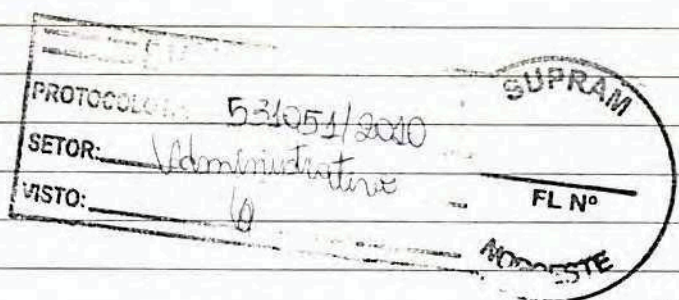 PROTOCOLO Nº: 531051/2010
SETOR: Administrativo
VISTO:
SUPRAM
FL Nº
NOROESTE